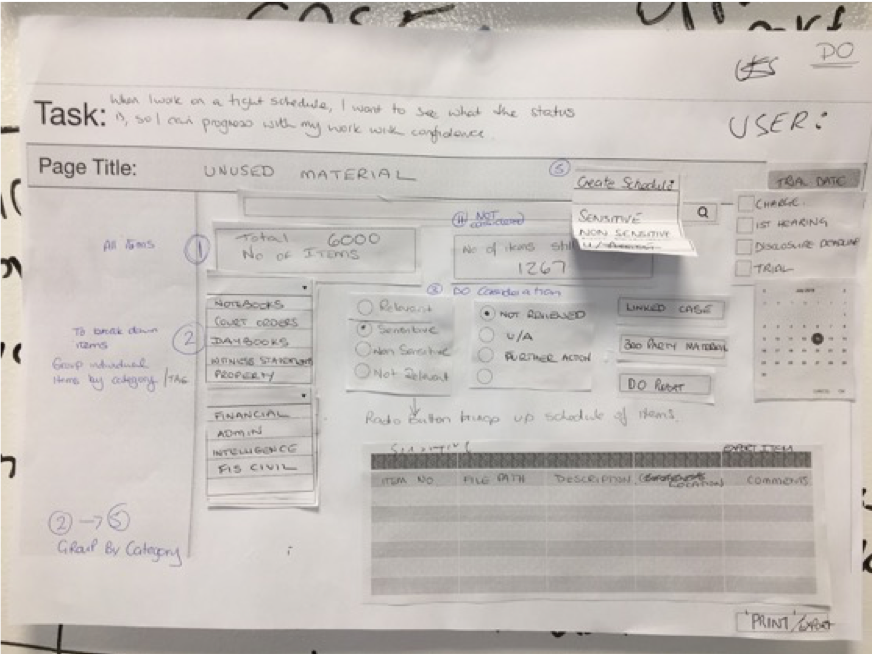 DO
Task: When I work on a tight schedule, I want to see what the status
is, so I can progress with my work with confidence.
USER:
Page Title: UNUSED MATERIAL
5
Create Schedule
SENSITIVE
NON SENSITIVE
TRIAL DATE
CHARGE
1ST HEARING
DISCLOSURE DEADLINE
TRIAL
All Items
1
Total 6000
No of Items
4 NOT considered
No of items still
1267
3 DO Consideration
To break down
items
Group individual
items by category / TAG
2
NOTEBOOKS
COURT ORDERS
DAYBOOKS
WITNESS STATEMENTS
PROPERTY
FINANCIAL
ADMIN
INTELLIGENCE
FIS CIVIL
Relevant
Sensitive
Non Sensitive
Not Relevant
NOT REVIEWED
U/A
FURTHER ACTION
LINKED CASE
3RD PARTY MATERIAL
Radio button brings up schedule of items.
Sensitive
EXPORT ITEM
ITEM NO FILE PATH DESCRIPTION LOCATION COMMENTS
2 → 5
Group By Category
PRINT/EXPORT